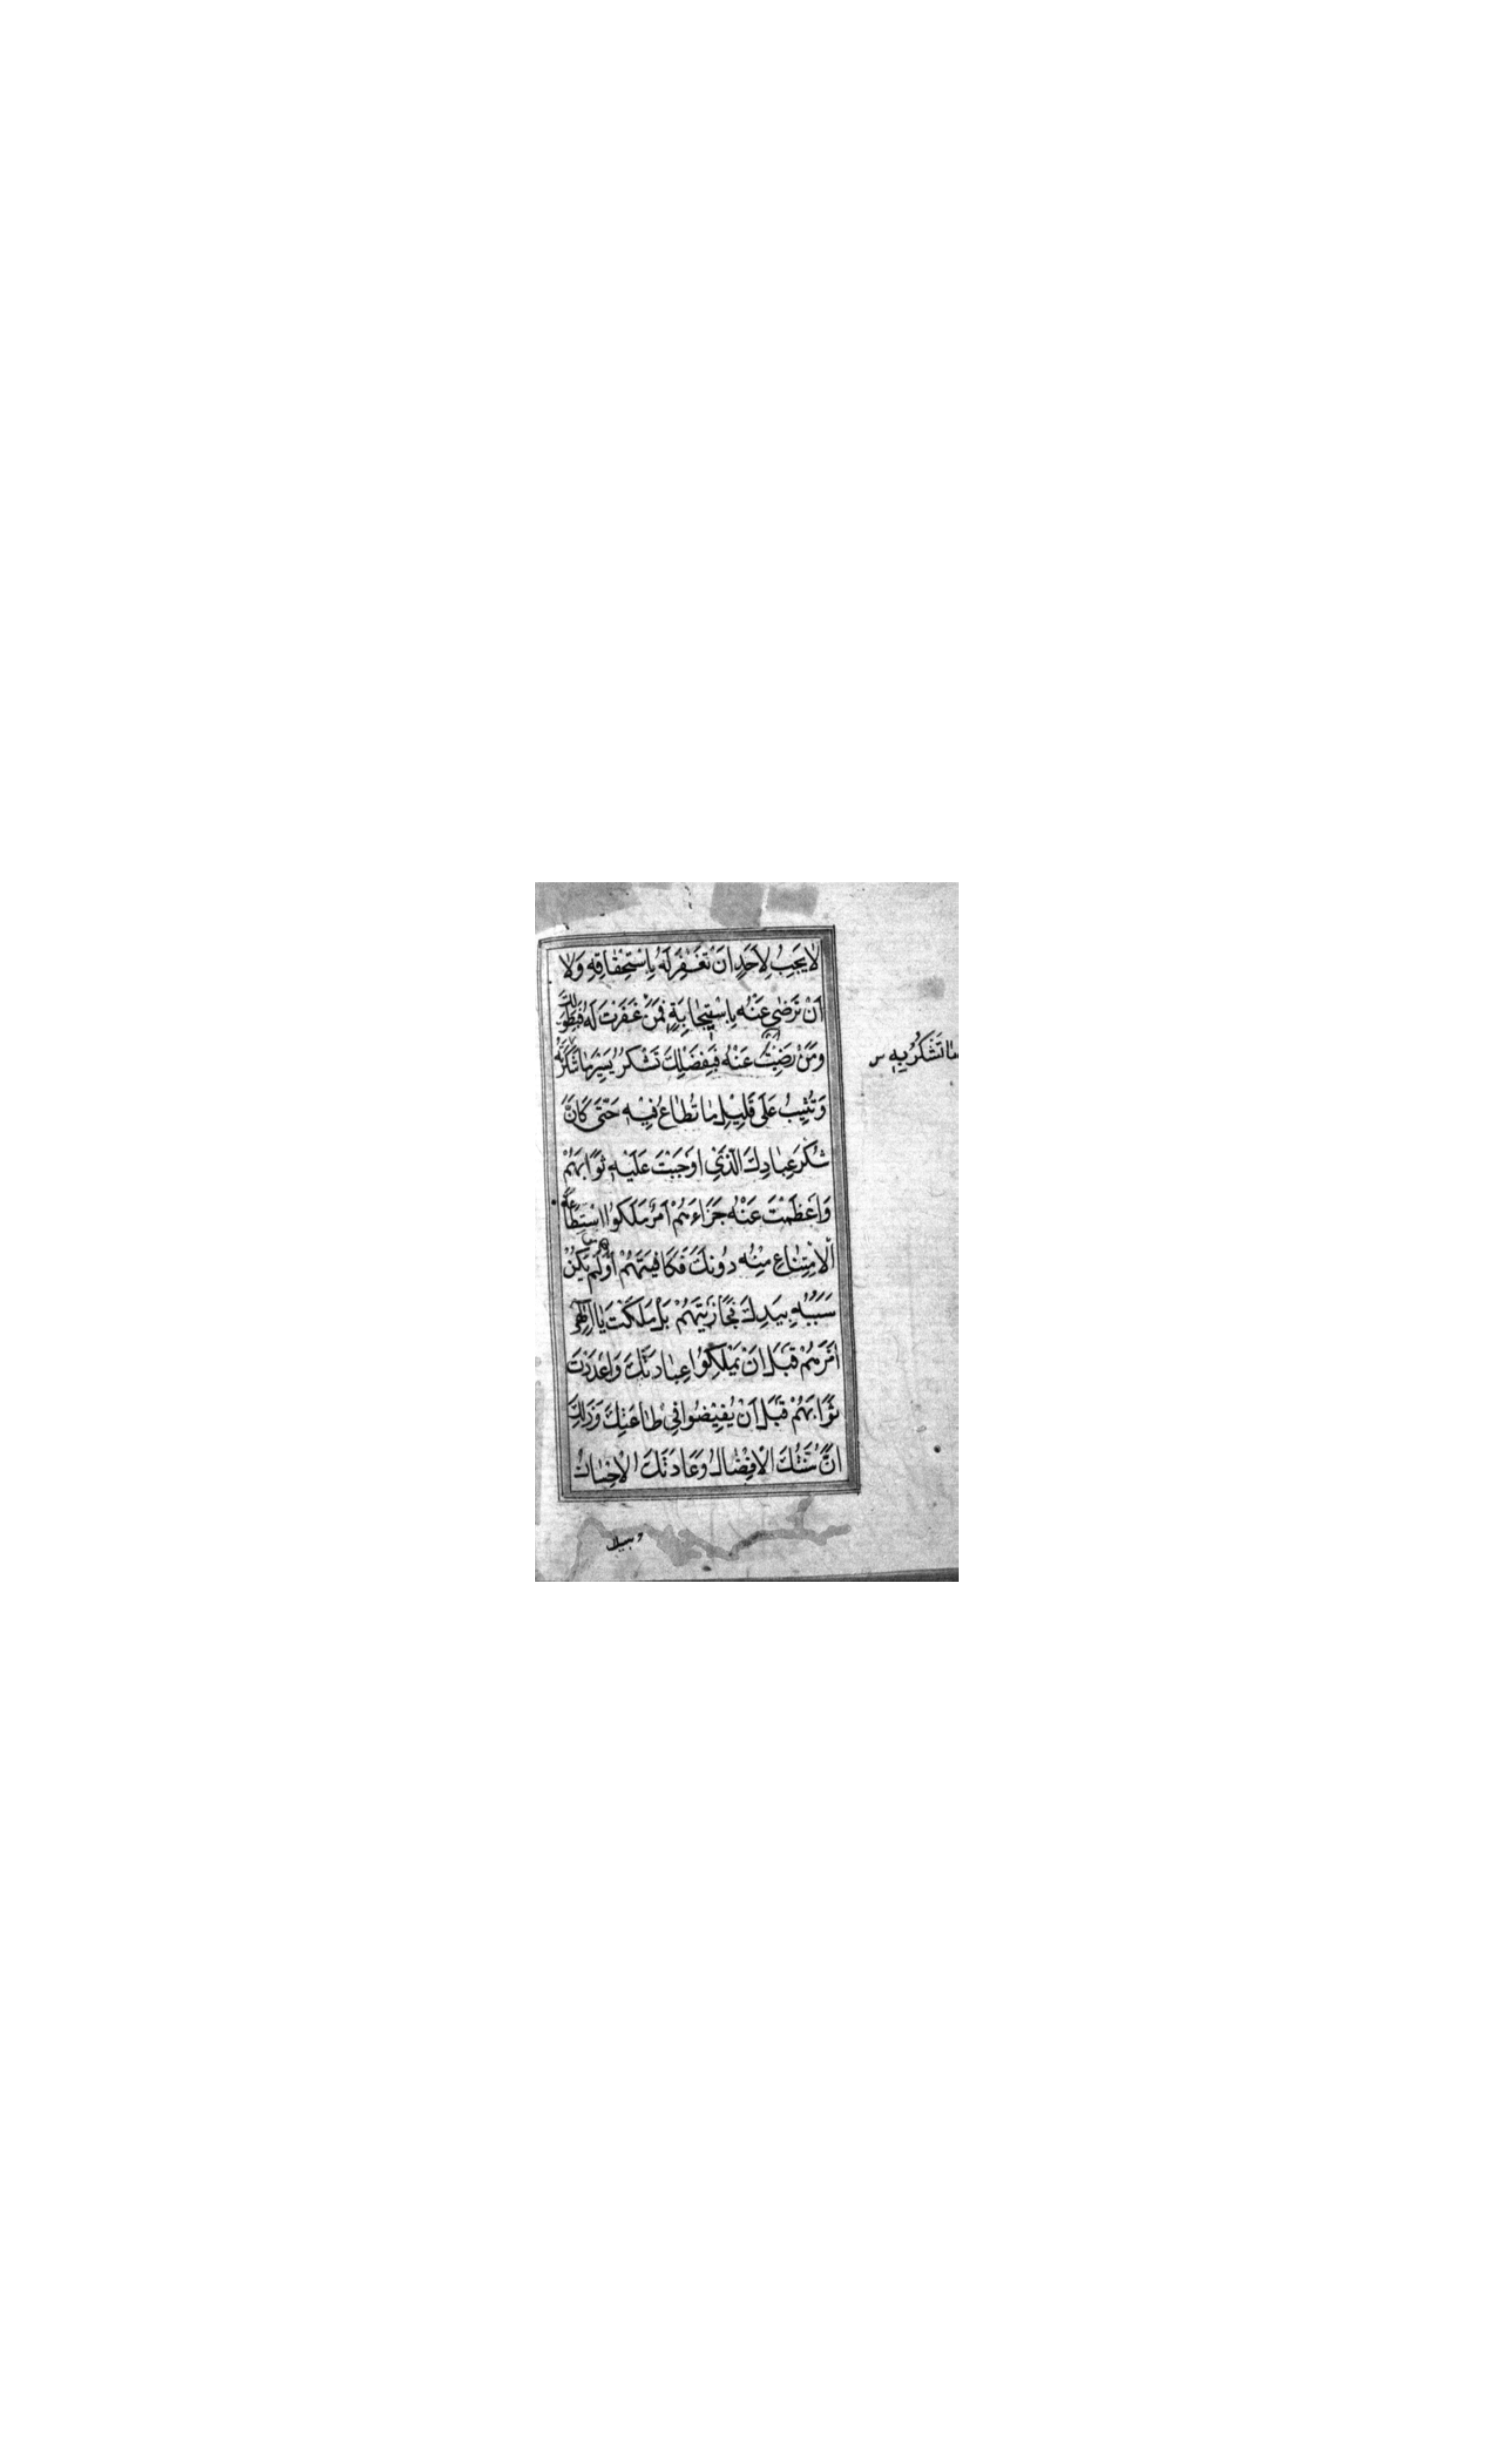 لا يَجِبُ لِاَحَدٍ اَنْ تَغْفِرَ لَهُ بِاسْتِحْقَاقِهِ وَلا
اَنْ تَرْضٰى عَنْهُ بِاسْتِيجَابِهِ فَمَنْ غَفَرْتَ لَهُ فَبِطَوْلِكَ
وَمَنْ رَضِيتَ عَنْهُ فَبِفَضْلِكَ تَشْكُرُ يَسِيرَ مَا شَكَرْتَهُ
ما تَشْكُرُ بِهِ س
وَتُثِيبُ عَلٰى قَلِيلِ مَا تُطَاعُ فِيهِ حَتّٰى كَاَنَّ
شُكْرَ عِبَادِكَ الَّذِي اَوْجَبْتَ عَلَيْهِ ثَوَابَهُمْ
وَاَعْظَمْتَ عَنْهُ جَزَاءَهُمْ اَمْرٌ مَلَكُوا اسْتِطَاعَةَ
الْاِمْتِنَاعِ مِنْهُ دُونَكَ فَكَافَيْتَهُمْ اَوْ لَمْ يَكُنْ
سَبَبُهُ بِيَدِكَ فَجَازَيْتَهُمْ بَلْ مَلَكْتَ يَا اِلٰهِي
اَمْرَهُمْ قَبْلَ اَنْ يَمْلِكُوا عِبَادَتَكَ وَاَعْدَدْتَ
ثَوَابَهُمْ قَبْلَ اَنْ يُفِيضُوا فِي طَاعَتِكَ وَذٰلِكَ
اَنَّ سُنَّتَكَ الْاِفْضَالُ وَعَادَتَكَ الْاِحْسَانُ
وسبيلك